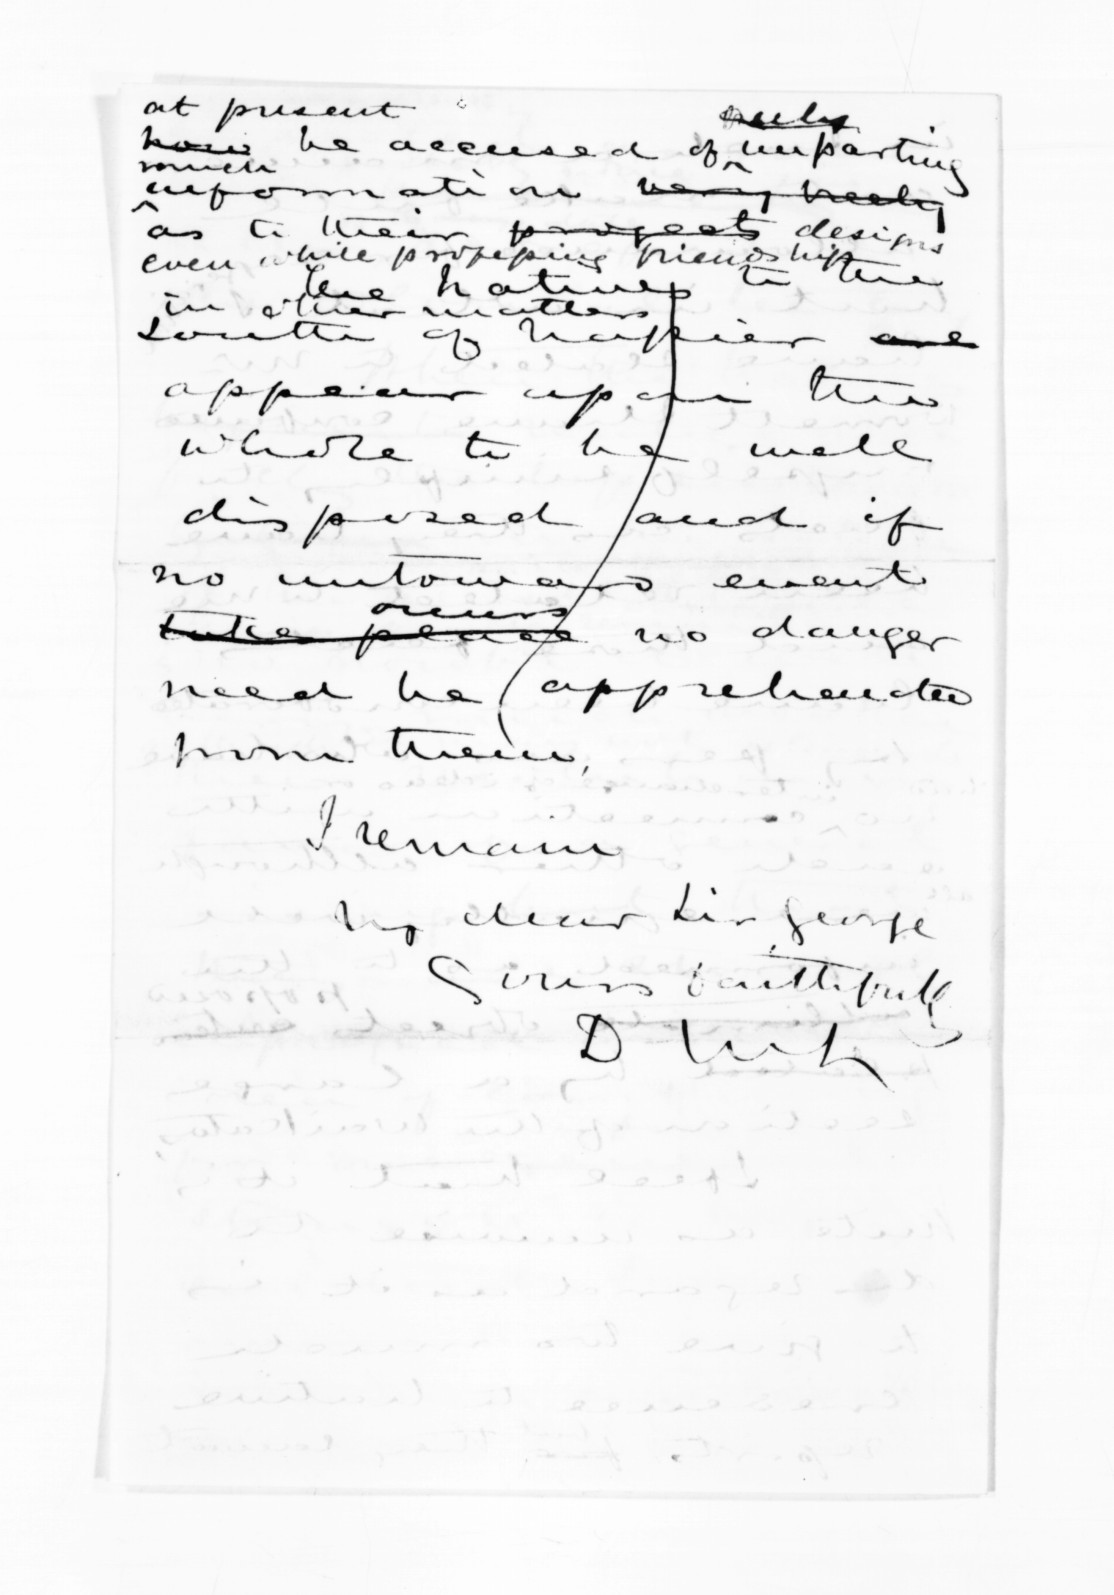 at present
now be accused of imparting
much
information very freely
as to their projects designs
even while professing friendship
the Natives to the
in other matters
South of Napier are
appear upon the
whole to be well
disposed and if
no untoward event
occurs
take place no danger
need be apprehended
from them,
I remain
My dear Sir George
Yours faithfully